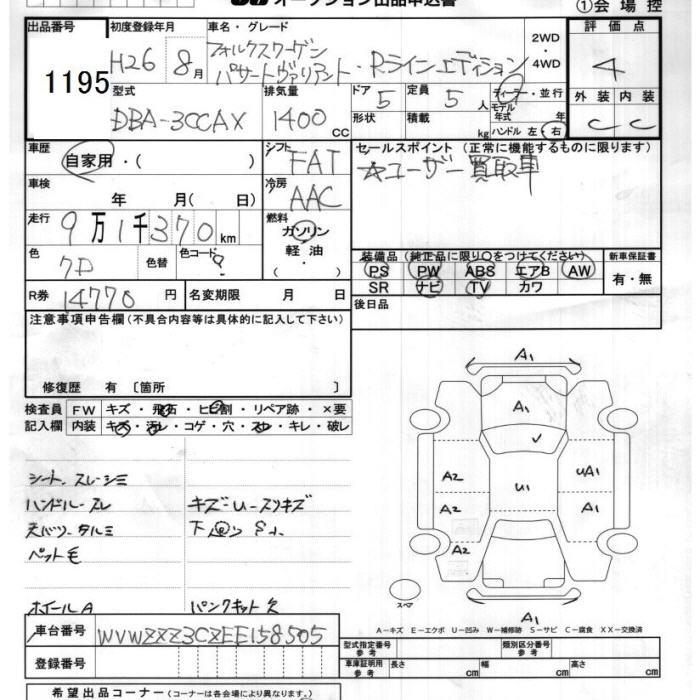 オークション出品申込書
①会場控
出品番号
1195
初度登録年月
H26 8月
車名・グレード
フォルクスワーゲン
パサートヴァリアント・Rラインエディション
2WD
・
4WD
評価点
4
外装 内装
C C
型式
DBA-3CCAX
排気量
1400 CC
ドア 5
定員 5 人
形状
積載 kg
ディーラー・並行
モデル
年式 年
ハンドル 左・右
車歴
自家用・( )
シフト
FAT
車検
年 月( 日)
冷房
AAC
セールスポイント (正常に機能するものに限ります)
☆ユーザー買取車
走行
9万1千370km
燃料
ガソリン
軽油・
( )
色
色替
色コード
?
装備品 (純正品に限り○をつけてください)
PS PW ABS エアB AW
SR ナビ TV カワ
新車保証書
有・無
R券 14770 円
名変期限 月 日
後日品
注意事項申告欄(不具合内容等は具体的に記入して下さい)
修復歴 有 〔箇所 〕
検査員
記入欄
FW キズ・飛石・ヒビ割・リペア跡・×要
内装 キズ・汚レ・コゲ・穴・スレ・キレ・破レ
シート、スレ・シミ
ハンドル-スレ
キズ-U-スリキズ
天バリ-タルミ
ペット毛
ホイールA
パンクキット欠
A1
A1
A2
U1
UA1
A2
A1
A2
スペア
A1
A-キズ E-エクボ U-凹み W-補修跡 S-サビ C-腐食 XX-交換済
車台番号 WVWZZZ3CZEE158505
登録番号
型式指定番号
参考
類別区分番号
参考
車庫証明用
参考
長さ cm 幅 cm 高さ cm
希望出品コーナー (コーナーは各会場により異なります。)